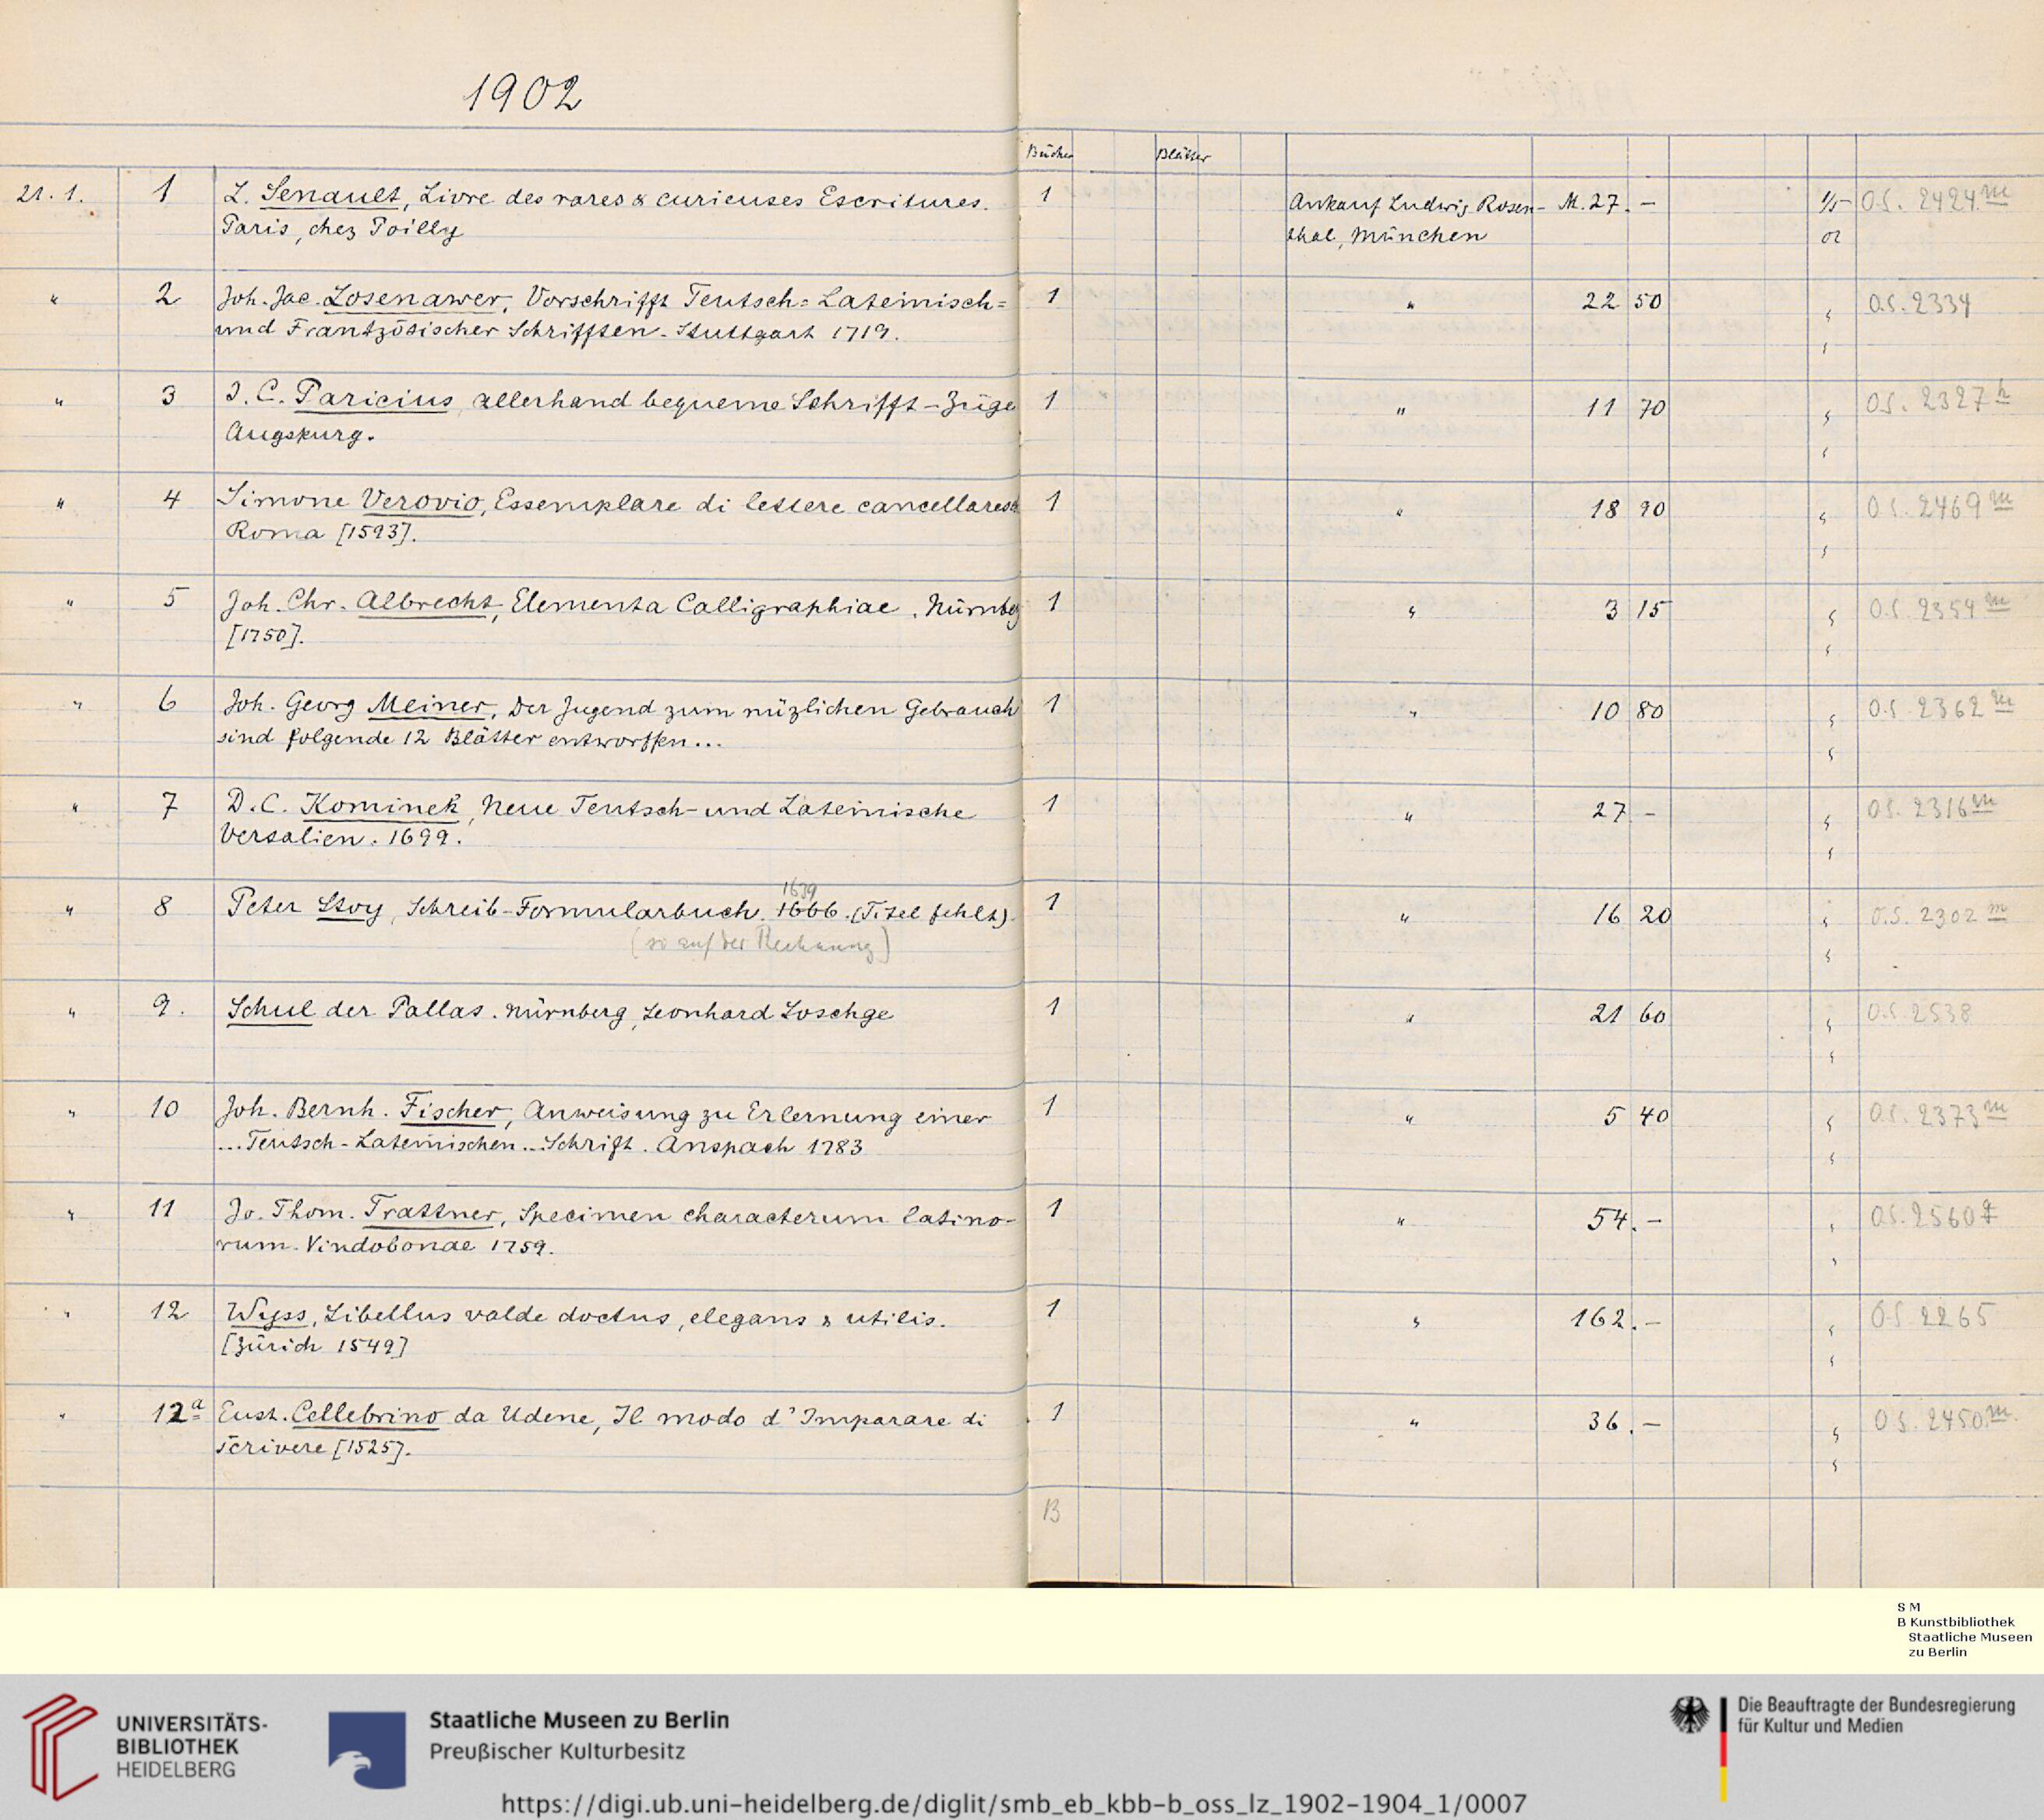 1902
Bücher Blätter
21.1. 1 L. Senault, Livre des rares & curieuses Escritures. 1 Ankauf Ludwig Rosen- M. 27. - 1/5 O.S. 2424 m
Paris, chez Poilly thal, München 02
" 2 Joh. Jac. Losenawer, Vorschrifft Teutsch= Lateinisch= 1 " 22 50 " O.S. 2334
und Frantzösischer Schrifften. Stuttgart 1719. "
" 3 J. C. Paricius, allerhand bequeme Schrifft-Züge 1 " 11 70 " O.S. 2327 h
Augspurg. "
" 4 Simone Verovio, Essemplare di lettere cancellaresch 1 " 18 90 " O.S. 2469 m
Roma [1593]. "
" 5 Joh. Chr. Albrecht, Elementa Calligraphiae. Nürnbg 1 " 3 15 " O.S. 2354 m
[1750]. "
" 6 Joh. Georg Meiner, Der Jugend zum nüzlichen Gebrauch 1 " 10 80 " O.S. 2362 m
sind folgende 12 Blätter entworffen... "
" 7 D. C. Kominek, Neue Teutsch- und Lateinische 1 " 27 - " O.S. 2316 m
Versalien. 1699. "
1639
" 8 Peter Stoy, Schreib-Formularbuch. 1666. (Titel fehlt). 1 " 16 20 " O.S. 2302 m
(so auf der Rechnung) "
" 9. Schul der Pallas. Nürnberg, Leonhard Loschge 1 " 21 60 " O.S. 2538
"
" 10 Joh. Bernh. Fischer, Anweisung zu Erlernung einer 1 " 5 40 " O.S. 2373 m
...Teutsch-Lateinischen...Schrift. Anspach 1783 "
" 11 Jo. Thom. Trattner, Specimen characterum latino- 1 " 54. - " O.S. 2560
rum. Vindobonae 1759. "
" 12 Wyss, Libellus valde doctus, elegans & utilis. 1 " 162. - " O.S. 2265
[Zürich 1549] "
" 12a Eust. Cellebrino da Udene, Il modo d'Imparare di 1 " 36. - " O.S. 2450 m
scrivere [1525]. "
B
S M
B Kunstbibliothek
Staatliche Museen
zu Berlin
UNIVERSITÄTS-
BIBLIOTHEK
HEIDELBERG
Staatliche Museen zu Berlin
Preußischer Kulturbesitz
Die Beauftragte der Bundesregierung
für Kultur und Medien
https://digi.ub.uni-heidelberg.de/diglit/smb_eb_kbb-b_oss_lz_1902-1904_1/0007